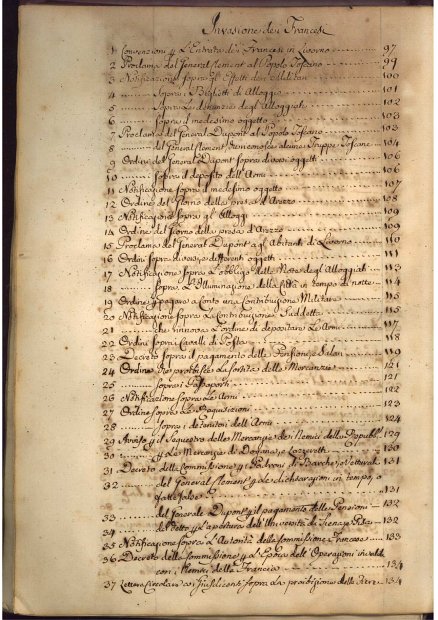 Invasione dei Francesi
1 Convenzioni p l'Entrata di Francesi in Livorno 97
2 Proclama del General Clement al Popolo Toscano 99
3 Notificazione sopra gli Effetti dei Militari 100
4 Sopra i Biglietti di Alloggio 101
5 Sopra le denunzie degl'Alloggiati 102
6 Sopra il medesimo oggetto 103
7 Proclama del General Dupont al Popolo Toscano 103
8 del General Clement, alcune Truppe Toscane 104
9 Ordine del General Dupont sopra diversi oggetti 106
10 sopra il deposito dell'Armi 106
11 Notificazione sopra il medesimo oggetto 107
12 Ordine del Giorno della presa d'Arezzo 108
13 Notificazione sopra gl'Alloggi 109
14 Ordine del Giorno della presa d'Arezzo 109
15 Proclama del General Dupont agl'Abitanti di Livorno 110
16 Ordini sopra differenti oggetti 111
17 Notificazione sopra l'obbligo delle Note degl'Alloggiati 113
18 sopra l'Illuminazione della Città in tempo di notte 114
19 Ordine p pagare a Conto una Contribuzione Militare 115
20 Notificazione sopra la Contribuzione Suddetta 116
21 che rinnova l'ordine di depositare le Armi 117
22 Ordini sopra i Cavalli di Posta 118
23 Decreto sopra il pagamento delle Pensioni, e Salari 119
24 Ordine che proibisce la sortita delle Mercanzie 121
25 sopra i Passaporti 121
26 Notificazione sopra le Armi 122
27 Ordine sopra le Requisizioni 123
28 sopra i detentori dell'Armi 124
29 Avviso p il Sequestro delle Mercanzie dei Nemici della Repubbl. 129
30 p le Mercanzie di Dogana, e Lazzeretti 130
31 Decreto della Commissione p i Padroni di Barche, e Vetturali 131
32 del General Clement p le dichiarazioni in tempo, o
false 131
33 del Generale Dupont p il pagamento delle Pensioni 132
34 p l'apertura dell'Università di Siena, e Pisa 132
35 Notificazione sopra l'Autorità della Commissione Francese 133
36 Decreto della Commissione p l'Epoca dell'Operazioni invalide
con i Nemici della Francia 134
37 Lettera Circolare sopra la proibizione delle 134